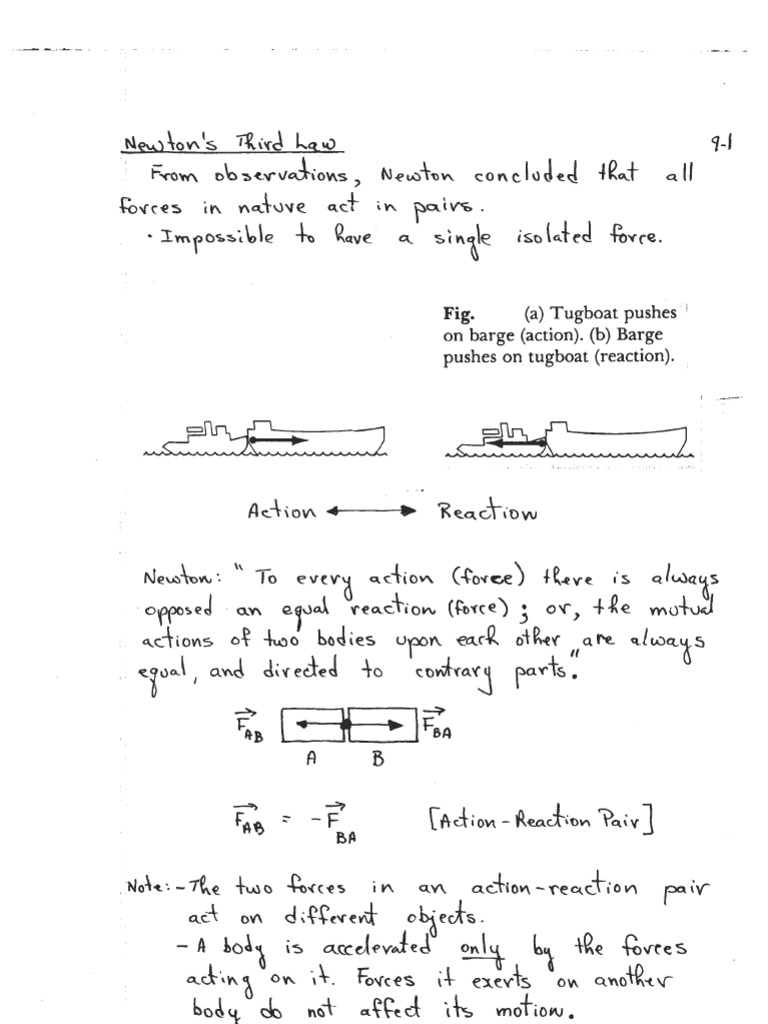 Newton's Third Law 9-1
From observations, Newton concluded that all
forces in nature act in pairs.
· Impossible to have a single isolated force.
Fig. (a) Tugboat pushes
on barge (action). (b) Barge
pushes on tugboat (reaction).
Action ⟷ Reaction
Newton: "To every action (force) there is always
opposed an equal reaction (force); or, the mutual
actions of two bodies upon each other are always
equal, and directed to contrary parts."
F⃗_AB F⃗_BA
A B
F⃗_AB = -F⃗_BA [Action-Reaction Pair]
Note: - The two forces in an action-reaction pair
act on different objects.
- A body is accelerated only by the forces
acting on it. Forces it exerts on another
body do not affect its motion.